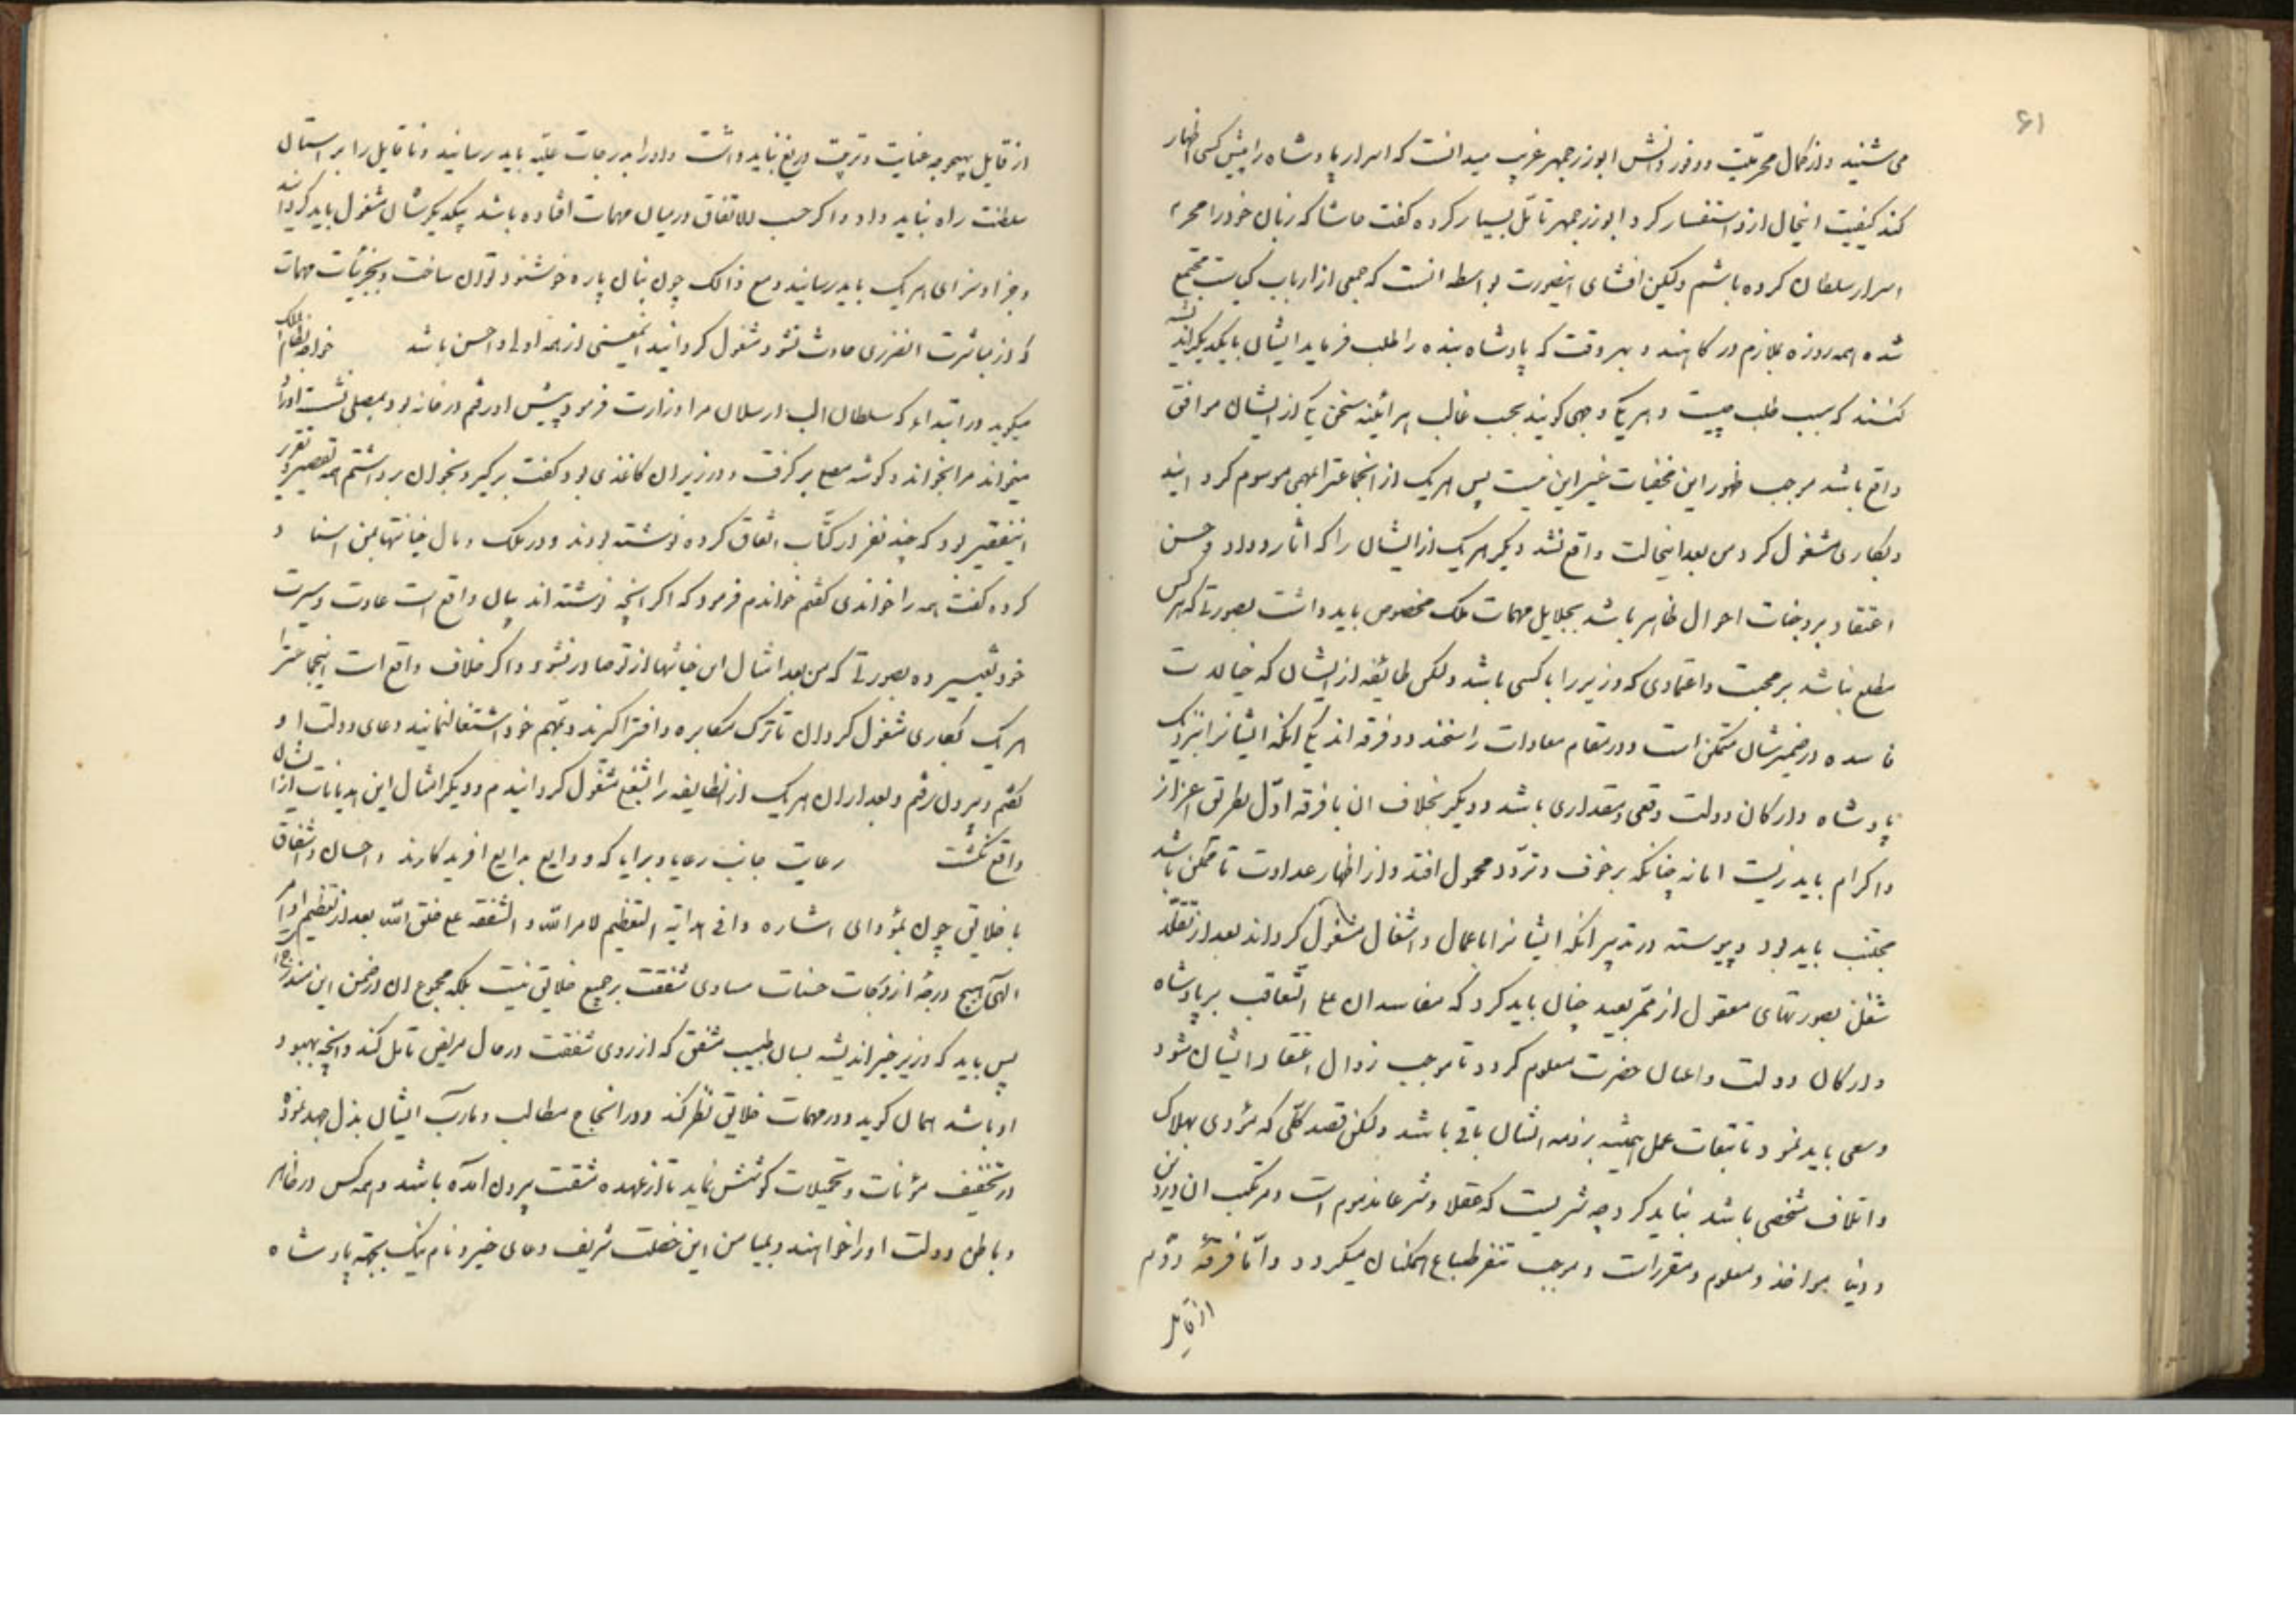 ۶۱
می شنید و از کمال محرمیّت و وفور دانش ابوزرجمهر غریب میدانست که اسرار پادشاه را پیش کسی اظهار
کند کیفیت اینحال ازو استفسار کرد ابوزرجمهر تأمّل بسیار کرده گفت حاشا که زبان خود را محرم
اسرار سلطان کرده باشم ولیکن افشای اینصورت بواسطه انست که جمعی از ارباب کیاست مجتمع
شده همه روزه ملازم درکاهند و بهر وقت که پادشاه بنده را طلب فرماید ایشان بایکدیکر اندیشه
کنند که سبب طلب چیست و هر یکی وجهی کویند بحسب غالب هر آئینه سخن یکی از ایشان موافق
واقع باشد موجب ظهور این مخفیات غیر این نیست پس هر یک از انجماعترا بمهمی موسوم کردانید
و بکاری مشغول کرد من بعد اینحالت واقع نشد دیکر هر یک از ایشان را که اثار وداد و حسن
اعتقاد بر وجنات احوال ظاهر باشد بجلایل مهمات ملک مخصوص باید داشت بصورتی که هر کس
مطلع نباشد بر محبت و اعتمادی که وزیر را با کسی باشد ولکن طائفه از ایشان که خیالات
فاسده در ضمیرشان متمکن است و در مقام معادات راسخند دو فرقه اند یکی انکه ایشانرا بنزدیک
پادشاه و ارکان دولت وقعی و مقداری باشد و دیکر بخلاف ان با فرقه اوّل بطریق اعزاز
و اکرام باید زیست اما نه چنانکه بر خوف و تردّد محمول افتد و از اظهار عداوت تا ممکن باشد
مجتنب باید بود و پیوسته در تدبیر انکه ایشانرا باعمال و اشغال مشغول کرداند بعد از تقلّد
شغلی بصورتهای معقول از ممرّ بعید چنان باید کرد که مفاسد ان علی التّعاقب بر پادشاه
و ارکان دولت و اعیان حضرت معلوم کردد تا موجب زوال اعتقاد ایشان شود
و سعی باید نمود تا تبعات عمل همیشه بر ذمه ایشان باقی باشد ولکن قصد کلّی که مؤدی بهلاک
و اتلاف شخصی باشد نباید کرد چه شریست که عقلا و شرعا مذموم است و مرتکب ان در دین
و دنیا مواخذ و معلوم و مقررات و موجب تنفر طباع همکنان میکردد و امّا فرقهٔ دوّم
از قایل
از قایل بهیچ وجه عنایت و تربیت دریغ نباید داشت و او را بدرجات علیّه باید رسانید و ناقایل را بر استان
سلطنت راه نباید داد و اکر حسب الاتفاق در میان مهمات افتاده باشد بیکدیکرشان مشغول باید کردانید
و جزا و سزای هر یک باید رسانید و مع ذالک چون بنان پاره خوشنود توان ساخت و بجزئیات مهمات
که از مباشرت انضرری حادث نشود مشغول کردانید انمعینی از همه اولی و احسن باشد    خواجه نظام الملک
میکوید در ابتداء که سلطان الب ارسلان مرا وزارت فرمود پیش او رفتم در خانه بود بمصلی نشسته اوراد
میخواند مرا بخواند و کوشه مصلی بر کرفت و در زیر ان کاغذی بود کفت بر کیر و بخوان برداشتم همه تقصیر و تقریر
اینفقیر بود که چند نفر از کتّاب اتفاق کرده نوشته بودند و در ملک و مال خیانتها بمن اسناد
کرده کفت همه را خواندی کفتم خواندم فرمود که اکر انچه نوشته اند بیان واقع است عادت و سیرت
خود تغییر ده بصورتی که من بعد امثال این خیانتها از تو صادر نشود و اکر خلاف واقع است اینجماعترا
هر یک بکاری مشغول کردان تا ترک مکابره و افترا کیرند و بمهم خود اشتغال نمایند دعای دولت او
کفتم و بیرون رفتم و بعد از ان هر یک از انطایفه را بشغلی مشغول کردانیدم و دیکر امثال این هذیانات از ایشان
واقع نکشت    رعایت جانب رعایا و برایا که ودایع بدایع افریدکارند و احسان و اشفاق
با خلایق چون بمؤدای اشاره وافی هدایه التعظیم لامر الله و الشفقه علی خلق الله بعد از تعظیم اوامر
الهی هیچ درجهٔ از درجات حسنات مساوی شفقت بر جمیع خلایق نیست بلکه مجموع ان در ضمن این مندرج است
پس باید که وزیر خیر اندیشه بسان طبیب مشفق که از روی شفقت در حال مریض تامل کند و انچه بهبود
او باشد همان کوید و در مهمات خلایق نظر کند و در انجاح مطالب و مارب ایشان بذل جهد نموده
در تخفیف مؤنات و تحمیلات کوشش نماید تا از عهده شفقت بیرون آمده باشد و همه کس در ظاهر
و باطن دولت او را خواهند و بمیامن این خصلت شریف دعای خیر و نام نیک بجهه پادشاه